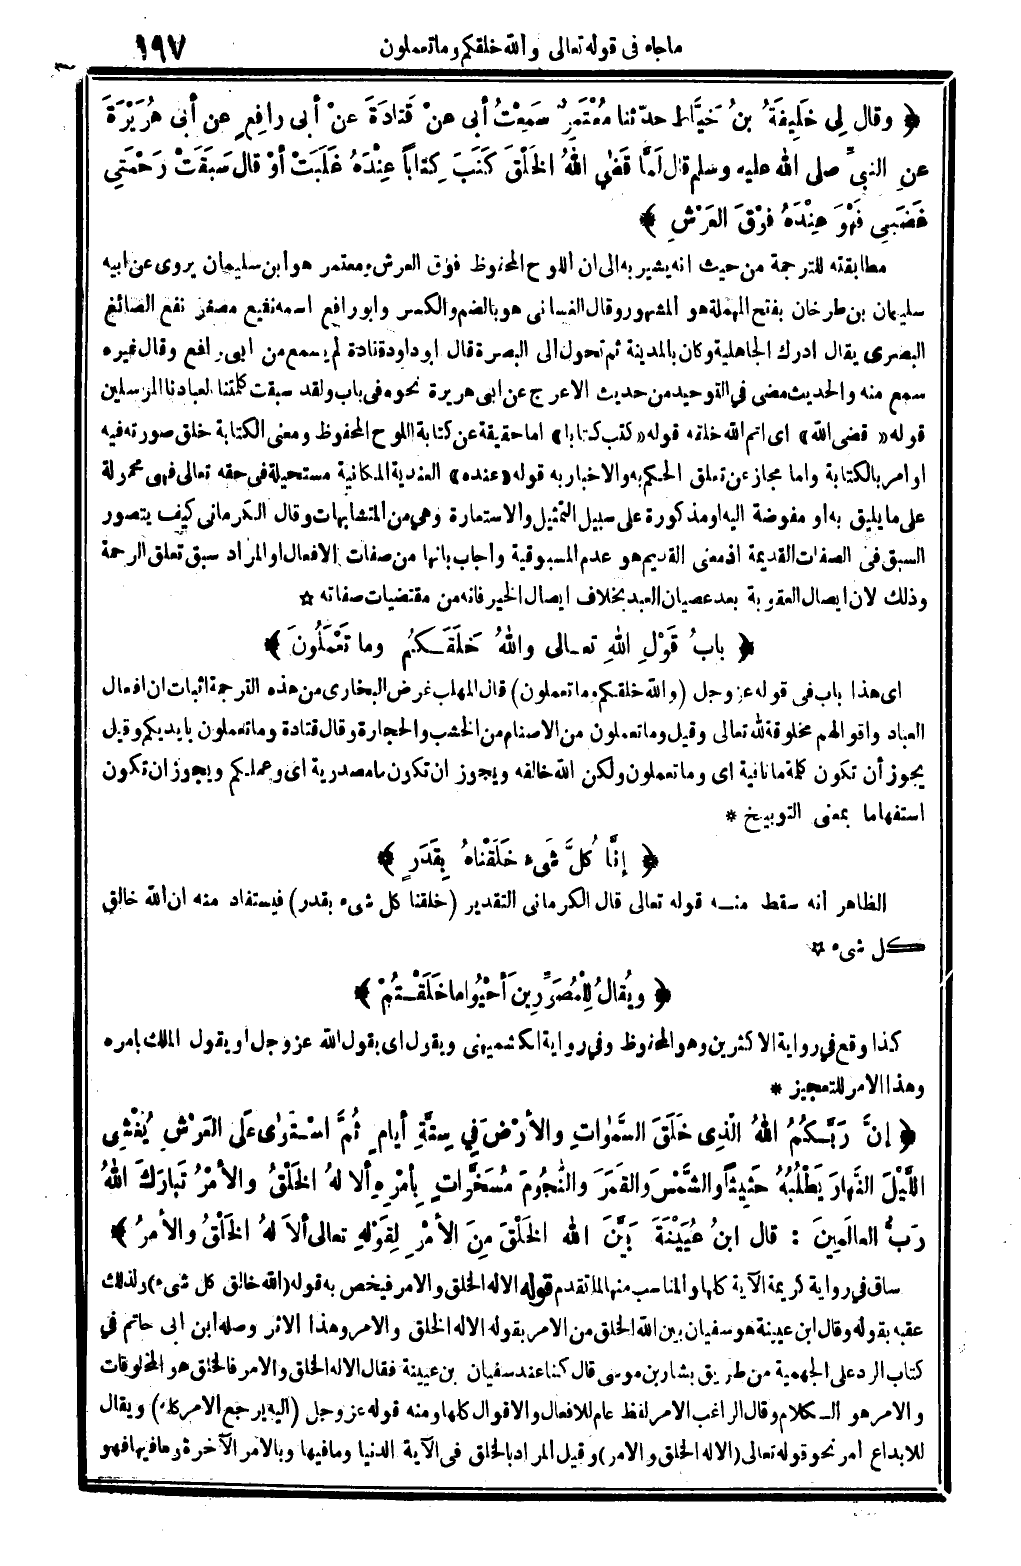 ما جاء فى قوله تعالى والله خلقكم وما تعملون ١٩٧
﴿ وقال لِى خَلِيفَةُ بنُ خَيَّاط حدّثنا مُعْتَمِرٌ سَمِعْتُ أبى عنْ قَتادَةَ عَنْ أبى رافِعٍ عن أبى هُرَيْرَةَ
عنِ النبىِّ صلى الله عليه وسلم قال لَمَّا قَضٰى اللهُ الخَلْقَ كَتَبَ كِتاباً عِنْدَهُ غَلَبَتْ أوْ قال سَبَقَتْ رَحْمَتِى
غَضَبِى فَهْوَ عِنْدَهُ فَوْقَ العَرْشِ ﴾
مطابقته للترجمة من حيث انه يشير به الى ان اللوح المحفوظ فوق العرش ومعتمر هو ابن سليمان يروى عن ابيه
سليمان بن طرخان بفتح المهملة هو المشهور وقال الغسانى هو بالضم والكسر وابو رافع اسمه نفيع مصغر نفع الصائغ
البصرى يقال ادرك الجاهلية وكان بالمدينة ثم تحول الى البصرة قال ابو داود قتادة لم يسمع من ابى رافع وقال غيره
سمع منه والحديث مضى فى التوحيد من حديث الاعرج عن ابى هريرة نحوه فى باب ولقد سبقت كلمتنا لعبادنا المرسلين
قوله « قضى الله » اى اتم الله خلقه قوله « كتب كتابا » اما حقيقة عن كتابة اللوح المحفوظ ومعنى الكتابة خلق صورته فيه
او امر بالكتابة واما مجاز عن تعلق الحكم به والاخبار به قوله « عنده » العندية المكانية مستحيلة فى حقه تعالى فهى محمولة
على ما يليق به او مفوضة اليه او مذكورة على سبيل التمثيل والاستعارة وهى من المتشابهات وقال الكرمانى كيف يتصور
السبق فى الصفات القديمة اذ معنى القديم هو عدم المسبوقية واجاب بانها من صفات الافعال او المراد سبق تعلق الرحمة
وذلك لان ايصال العقوبة بعد عصيان العبد بخلاف ايصال الخير فانه من مقتضيات صفاته ☆
﴿ بابُ قَوْلِ اللهِ تعالى واللهُ خَلَقَكُمْ وما تَعْمَلُونَ ﴾
اى هذا باب فى قوله عز وجل (والله خلقكم وما تعملون) قال المهلب غرض البخارى من هذه الترجمة اثبات ان افعال
العباد واقوالهم مخلوقة لله تعالى وقيل وما تعملون من الاصنام من الخشب والحجارة وقال قتادة وما تعملون بايديكم وقيل
يجوز أن تكون كلمة ما نافية اى وما تعملون ولكن الله خالقه ويجوز ان تكون ما مصدرية اى وعملكم ويجوز ان تكون
استفهاما بمعنى التوبيخ *
﴿ إنَّا كُلَّ شَىْء خَلَقْناهُ بِقَدَرٍ ﴾
الظاهر انه سقط منه قوله تعالى قال الكرمانى التقدير (خلقنا كل شىء بقدر) فيستفاد منه ان الله خالق
كل شىء ☆
﴿ ويُقالُ لِلْمُصَوِّرِينَ أحْيُوا ما خَلَقْتُمْ ﴾
كذا وقع فى رواية الاكثرين وهو المحفوظ وفى رواية الكشميهنى ويقول اى يقول الله عز وجل او يقول الملك بامره
وهذا الامر للتعجيز *
﴿ إنَّ رَبَّكُمُ اللهُ الَّذِى خَلَقَ السَّمٰوَاتِ والأرْضَ فِى سِتَّةِ أيامٍ ثُمَّ اسْتَوٰى عَلَى العَرْشِ يُغْشِى
اللَّيْلَ النَّهارَ يَطْلُبُهُ حَثِيثاً والشَّمْسَ والقَمَرَ والنُّجُومَ مُسَخَّرَاتٍ بِأمْرِهِ ألا لهُ الخَلْقُ والأمْرُ تَبارَكَ اللهُ
رَبُّ العالَمِينَ : قال ابنُ عُيَيْنَةَ بَيَّنَ الله الخَلْقَ مِنَ الأمْرِ لِقَوْلِهِ تعالى ألاَ لهُ الخَلْقُ والأمرُ ﴾
ساق فى رواية كريمة الآية كلها والمناسب منها لما تقدم قوله الاله الخلق والامر فيخص به قوله (الله خالق كل شىء) ولذلك
عقبه بقوله وقال ابن عيينة هو سفيان بين الله الخلق من الامر بقوله الاله الخلق والامر وهذا الاثر وصله ابن ابى حاتم فى
كتاب الرد على الجهمية من طريق بشار بن موسى قال كنا عند سفيان بن عيينة فقال الاله الخلق والامر فالخلق هو المخلوقات
والامر هو الكلام وقال الراغب الامر لفظ عام للافعال والاقوال كلها ومنه قوله عز وجل (اليه يرجع الامر كله) ويقال
للابداع امر نحو قوله تعالى (الاله الخلق والامر) وقيل المراد بالخلق فى الآية الدنيا وما فيها وبالامر الآخرة وما فيها فهو